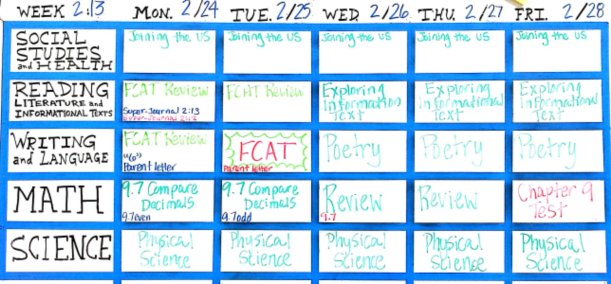 WEEK 2:13 MON. 2/24 TUE. 2/25 WED 2/26 THU. 2/27 FRI. 2/28
SOCIAL
STUDIES
and HEALTH
Joining the US
Joining the US
Joining the US
Joining the US
Joining the US
READING
LITERATURE and
INFORMATIONAL TEXTS
FCAT Review
Super-Journal 2:13
FCAT Review
Exploring
Informational
Text
Exploring
Informational
Text
Exploring
Informational
Text
WRITING
and LANGUAGE
FCAT Review
Parent letter
FCAT
Parent letter
Poetry
Poetry
Poetry
MATH
9.7 Compare
Decimals
9.7 even
9.7 Compare
Decimals
9.7 odd
Review
9.7
Review
Chapter 9
Test
SCIENCE
Physical
Science
Physical
Science
Physical
Science
Physical
Science
Physical
Science